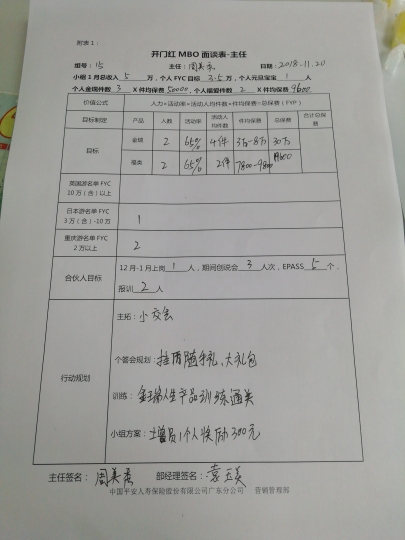 附表 1：
开门红 MBO 面谈表-主任
组号：15 主任：周美 日期：2018.11.20
小组 1 月总收入 5 万，个人 FYC 目标 3.5 万，个人元旦宝宝 1 人
个人金瑞件数 3 X 件均保费 50000，个人福爱件数 2 X 件均保费 9600
价值公式 人力×活动率×活动人均件数×件均保费=总保费（FYP）
目标制定 产品 人数 活动率 活动人均件数 件均保费 总保费 合计总保费
目标 金瑞 2 65% 4件 3万-8万 30万
福类 2 65% 2件 7800-9800
英国游名单 FYC 10 万（含）以上
日本游名单 FYC 3 万（含）-10 万 1
重庆游名单 FYC 2 万以上 2
合伙人目标 12 月-1 月上岗 1 人，期间创说会 3 人次，EPASS 5 个，
报训 2 人
行动规划 主拓：小交会
个答会规划：挂历随手礼、大礼包
训练：金瑞人生产品训练通关
小组方案：增员1个人奖励300元
主任签名：周美 部经理签名：袁玉美
中国平安人寿保险股份有限公司广东分公司 营销管理部